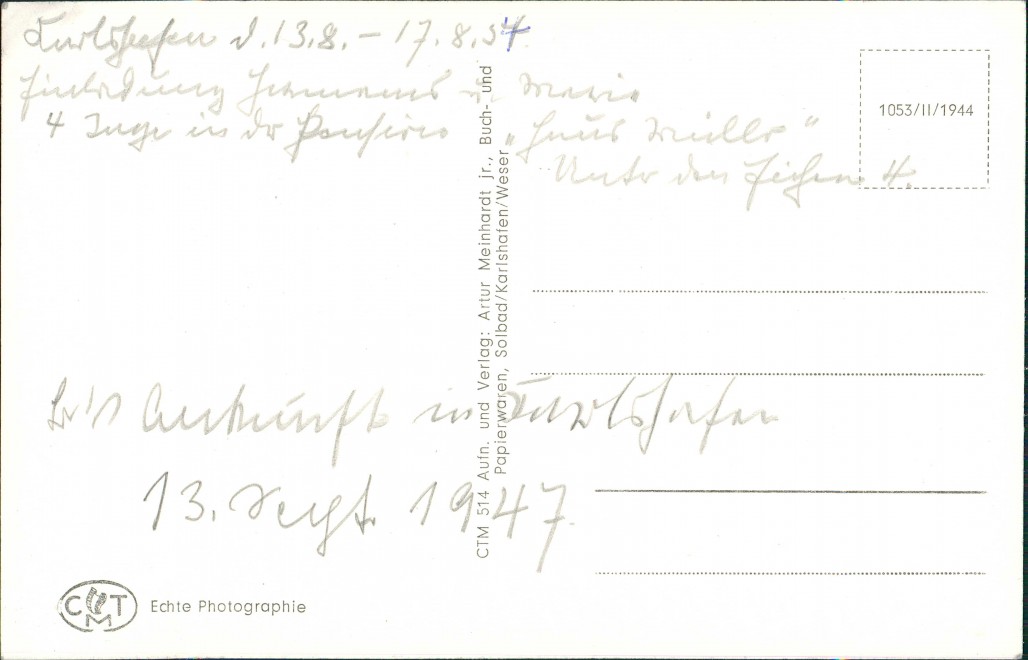 Karlshafen d. 13.8. – 17.8.54.
Einladung Hermanns u. Marie
4 Tage in der Pension „Haus Müller“
Unter den Eichen 4.
1053/II/1944
CTM 514 Aufn. und Verlag: Artur Meinhardt jr., Buch- und
Papierwaren, Solbad/Karlshafen/Weser
Ankunft in Karlshafen
13. Sept. 1947.
CMT
Echte Photographie